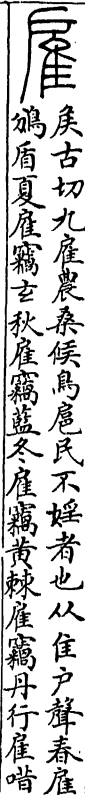 雇
矦古切九雇農桑候鳥扈民不婬者也从隹戶聲春雇
鳻盾夏雇竊玄秋雇竊藍冬雇竊黃棘雇竊丹行雇唶